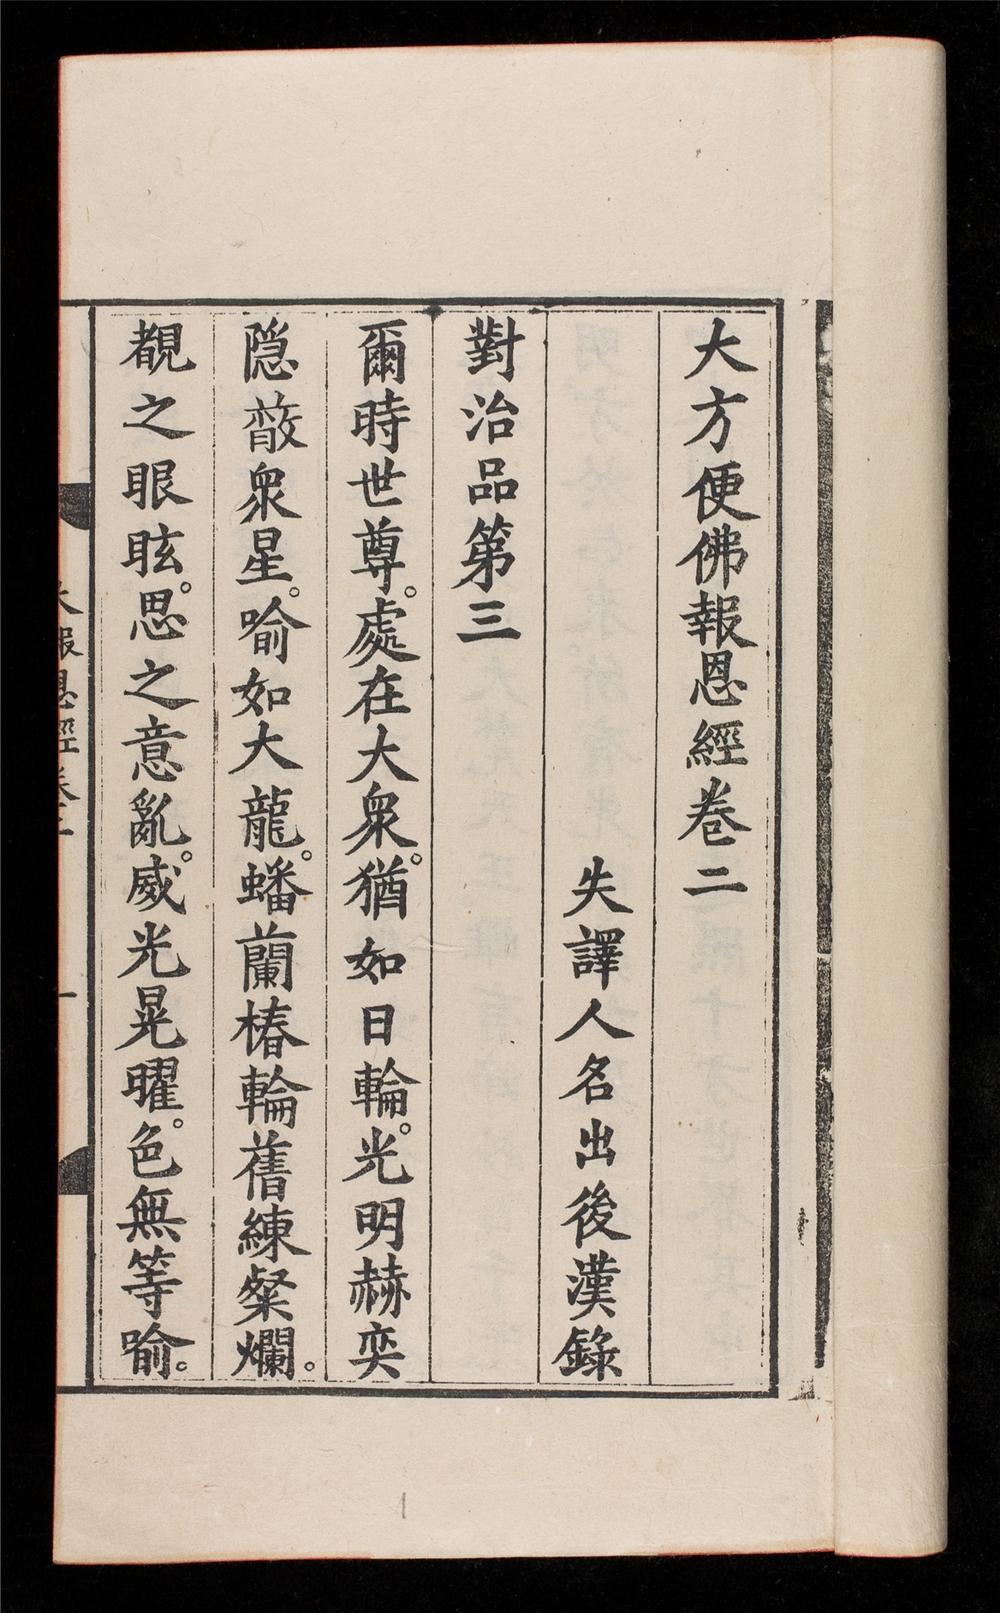 大方便佛報恩經卷二
失譯人名出後漢錄
對治品第三
爾時世尊。處在大衆。猶如日輪。光明赫奕
隱蔽衆星。喻如大龍。蟠蘭椿輪舊練粲爛。
覩之眼眩。思之意亂。威光晃曜。色無等喻。
大報恩經卷二
一